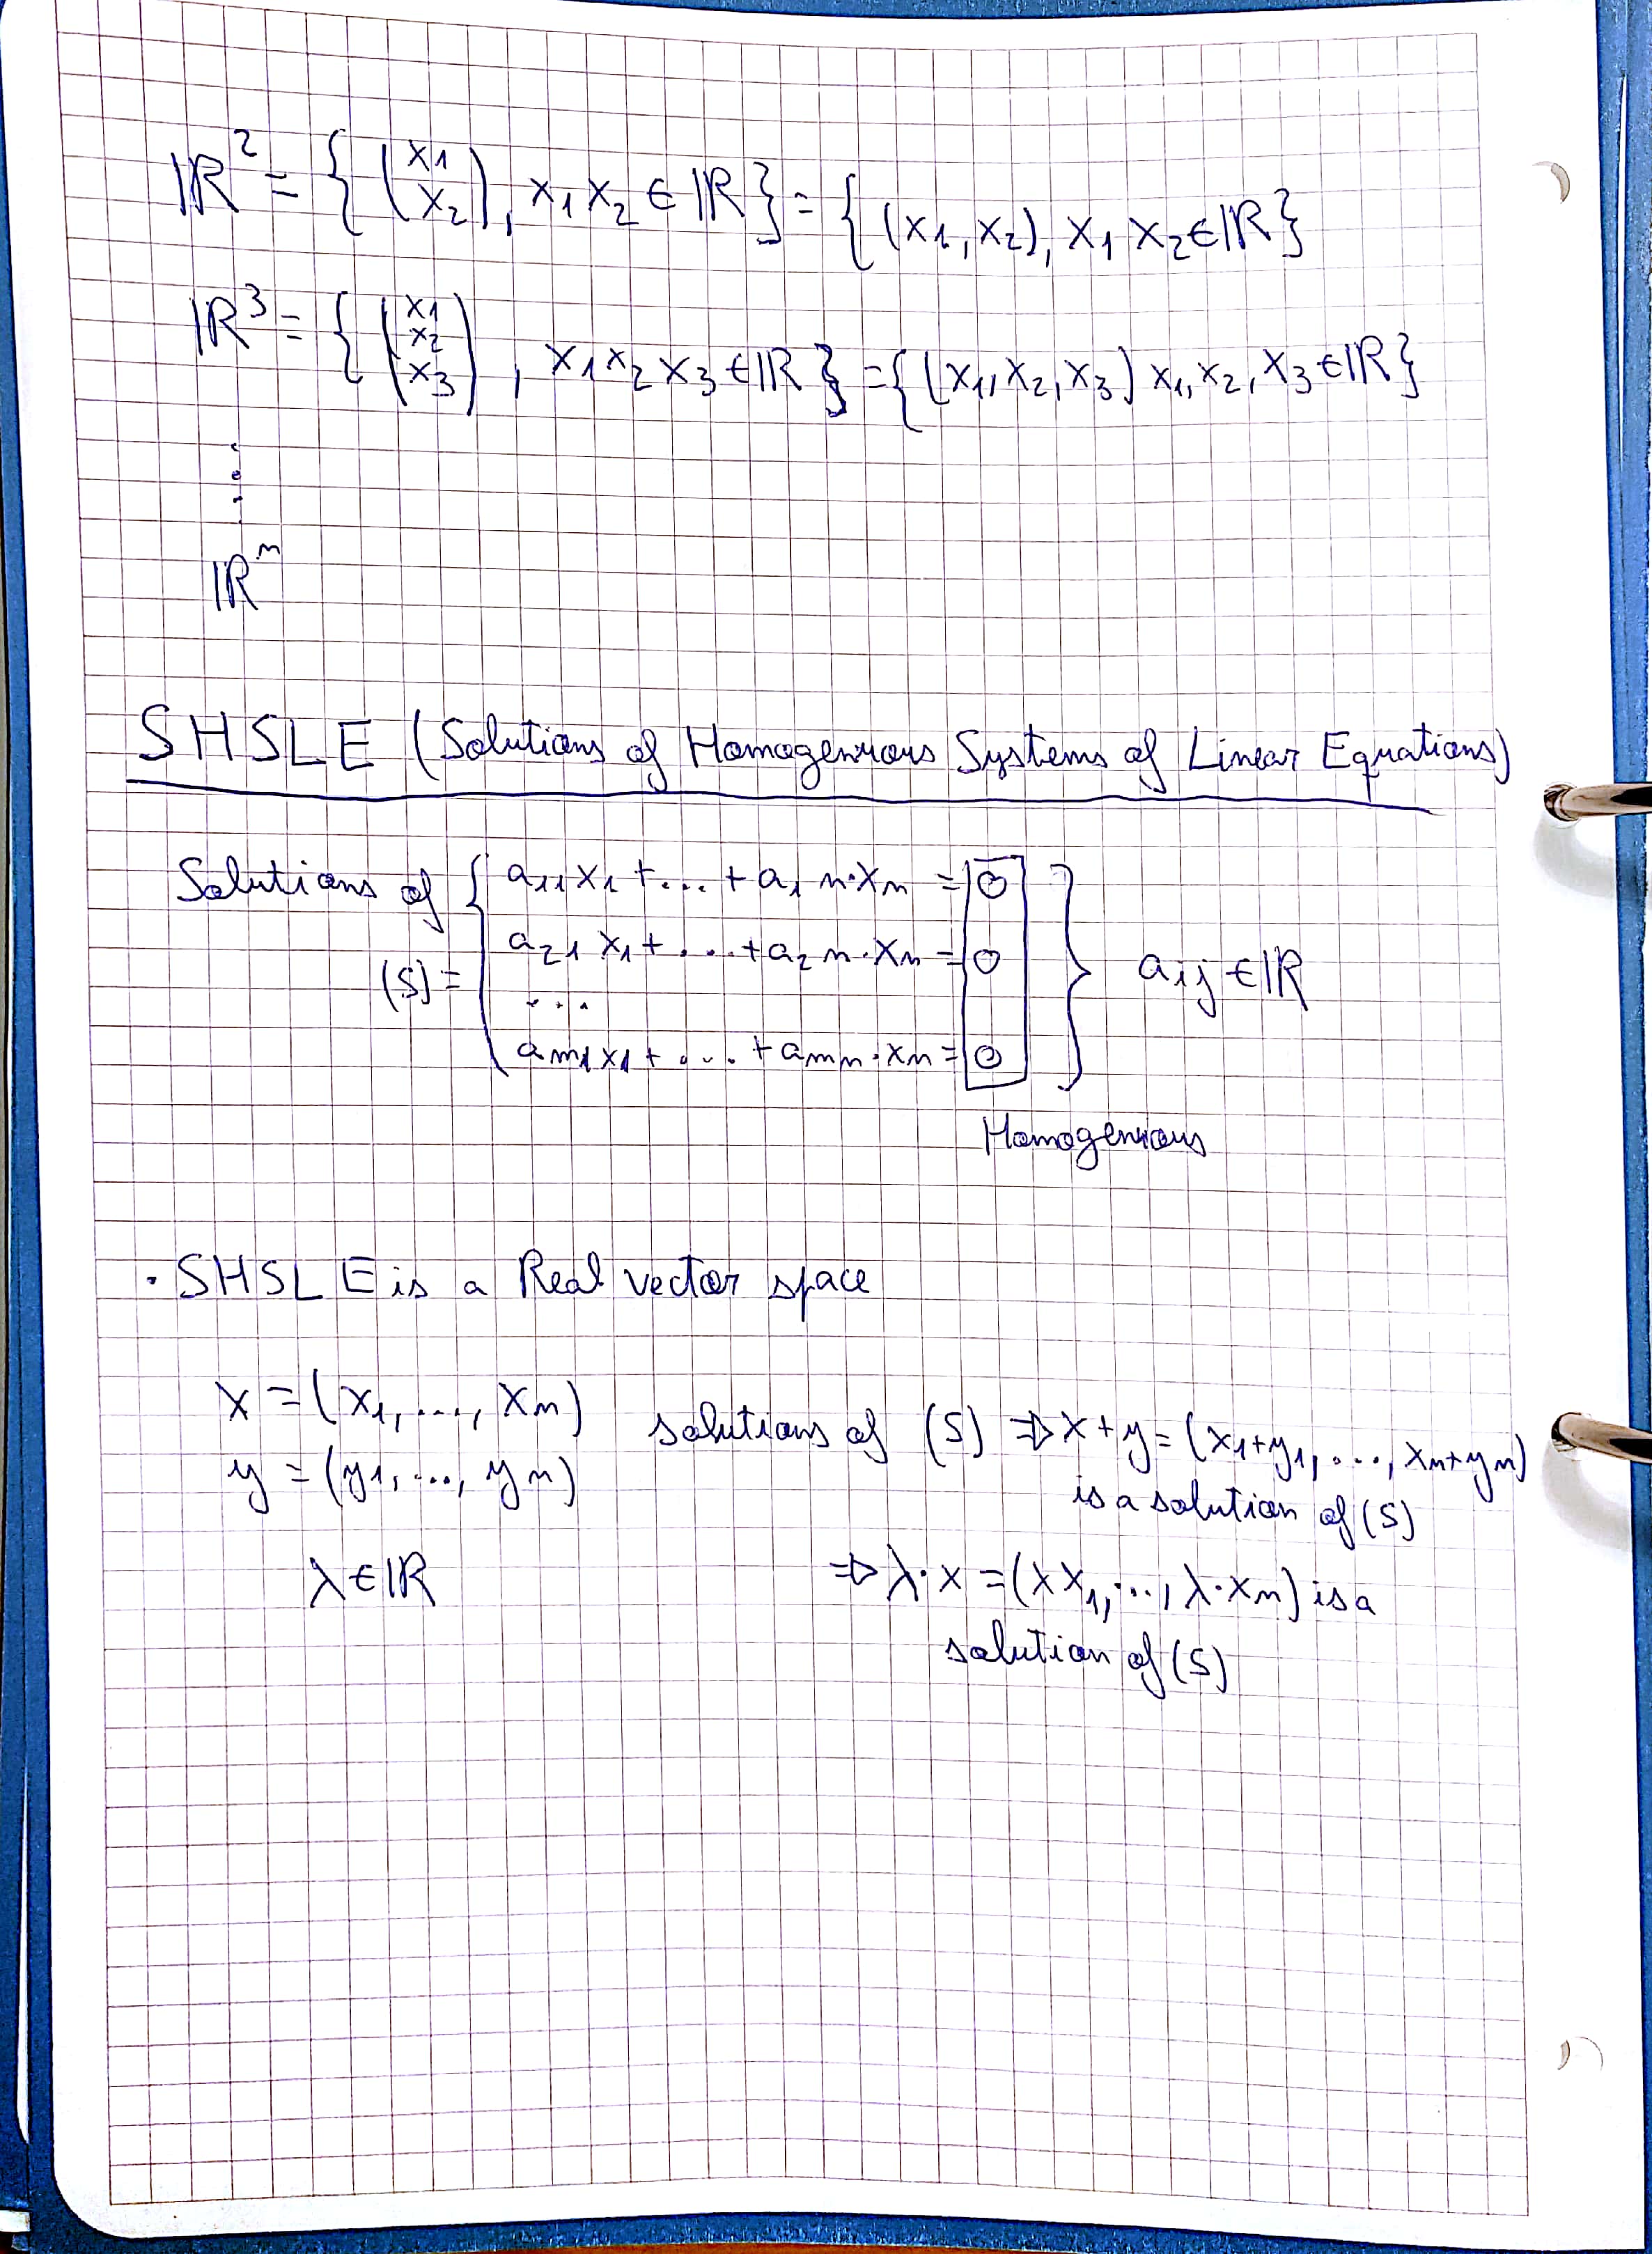 ℝ² = { (x₁ x₂), x₁ x₂ ∈ ℝ } = { (x₁, x₂), x₁ x₂ ∈ ℝ }
ℝ³ = { (x₁ x₂ x₃), x₁ x₂ x₃ ∈ ℝ } = { (x₁, x₂, x₃) x₁, x₂, x₃ ∈ ℝ }
⋮
ℝⁿ
SHSLE (Solutions of Homogenious Systems of Linear Equations)
Solutions of { a₁₁x₁ + ... + a₁n·xn = 0
a₂₁x₁ + ... + a₂n·xn = 0
(S) = ...
am₁x₁ + ... + amn·xn = 0 } aij ∈ ℝ
Homogenious
· SHSLE is a Real vector space
x = (x₁, ..., xn)
y = (y₁, ..., yn)
solutions of (S) ⇒ x + y = (x₁+y₁, ..., xn+yn)
is a solution of (S)
λ ∈ ℝ ⇒ λ·x = (λx₁, ..., λ·xn) is a
solution of (S)